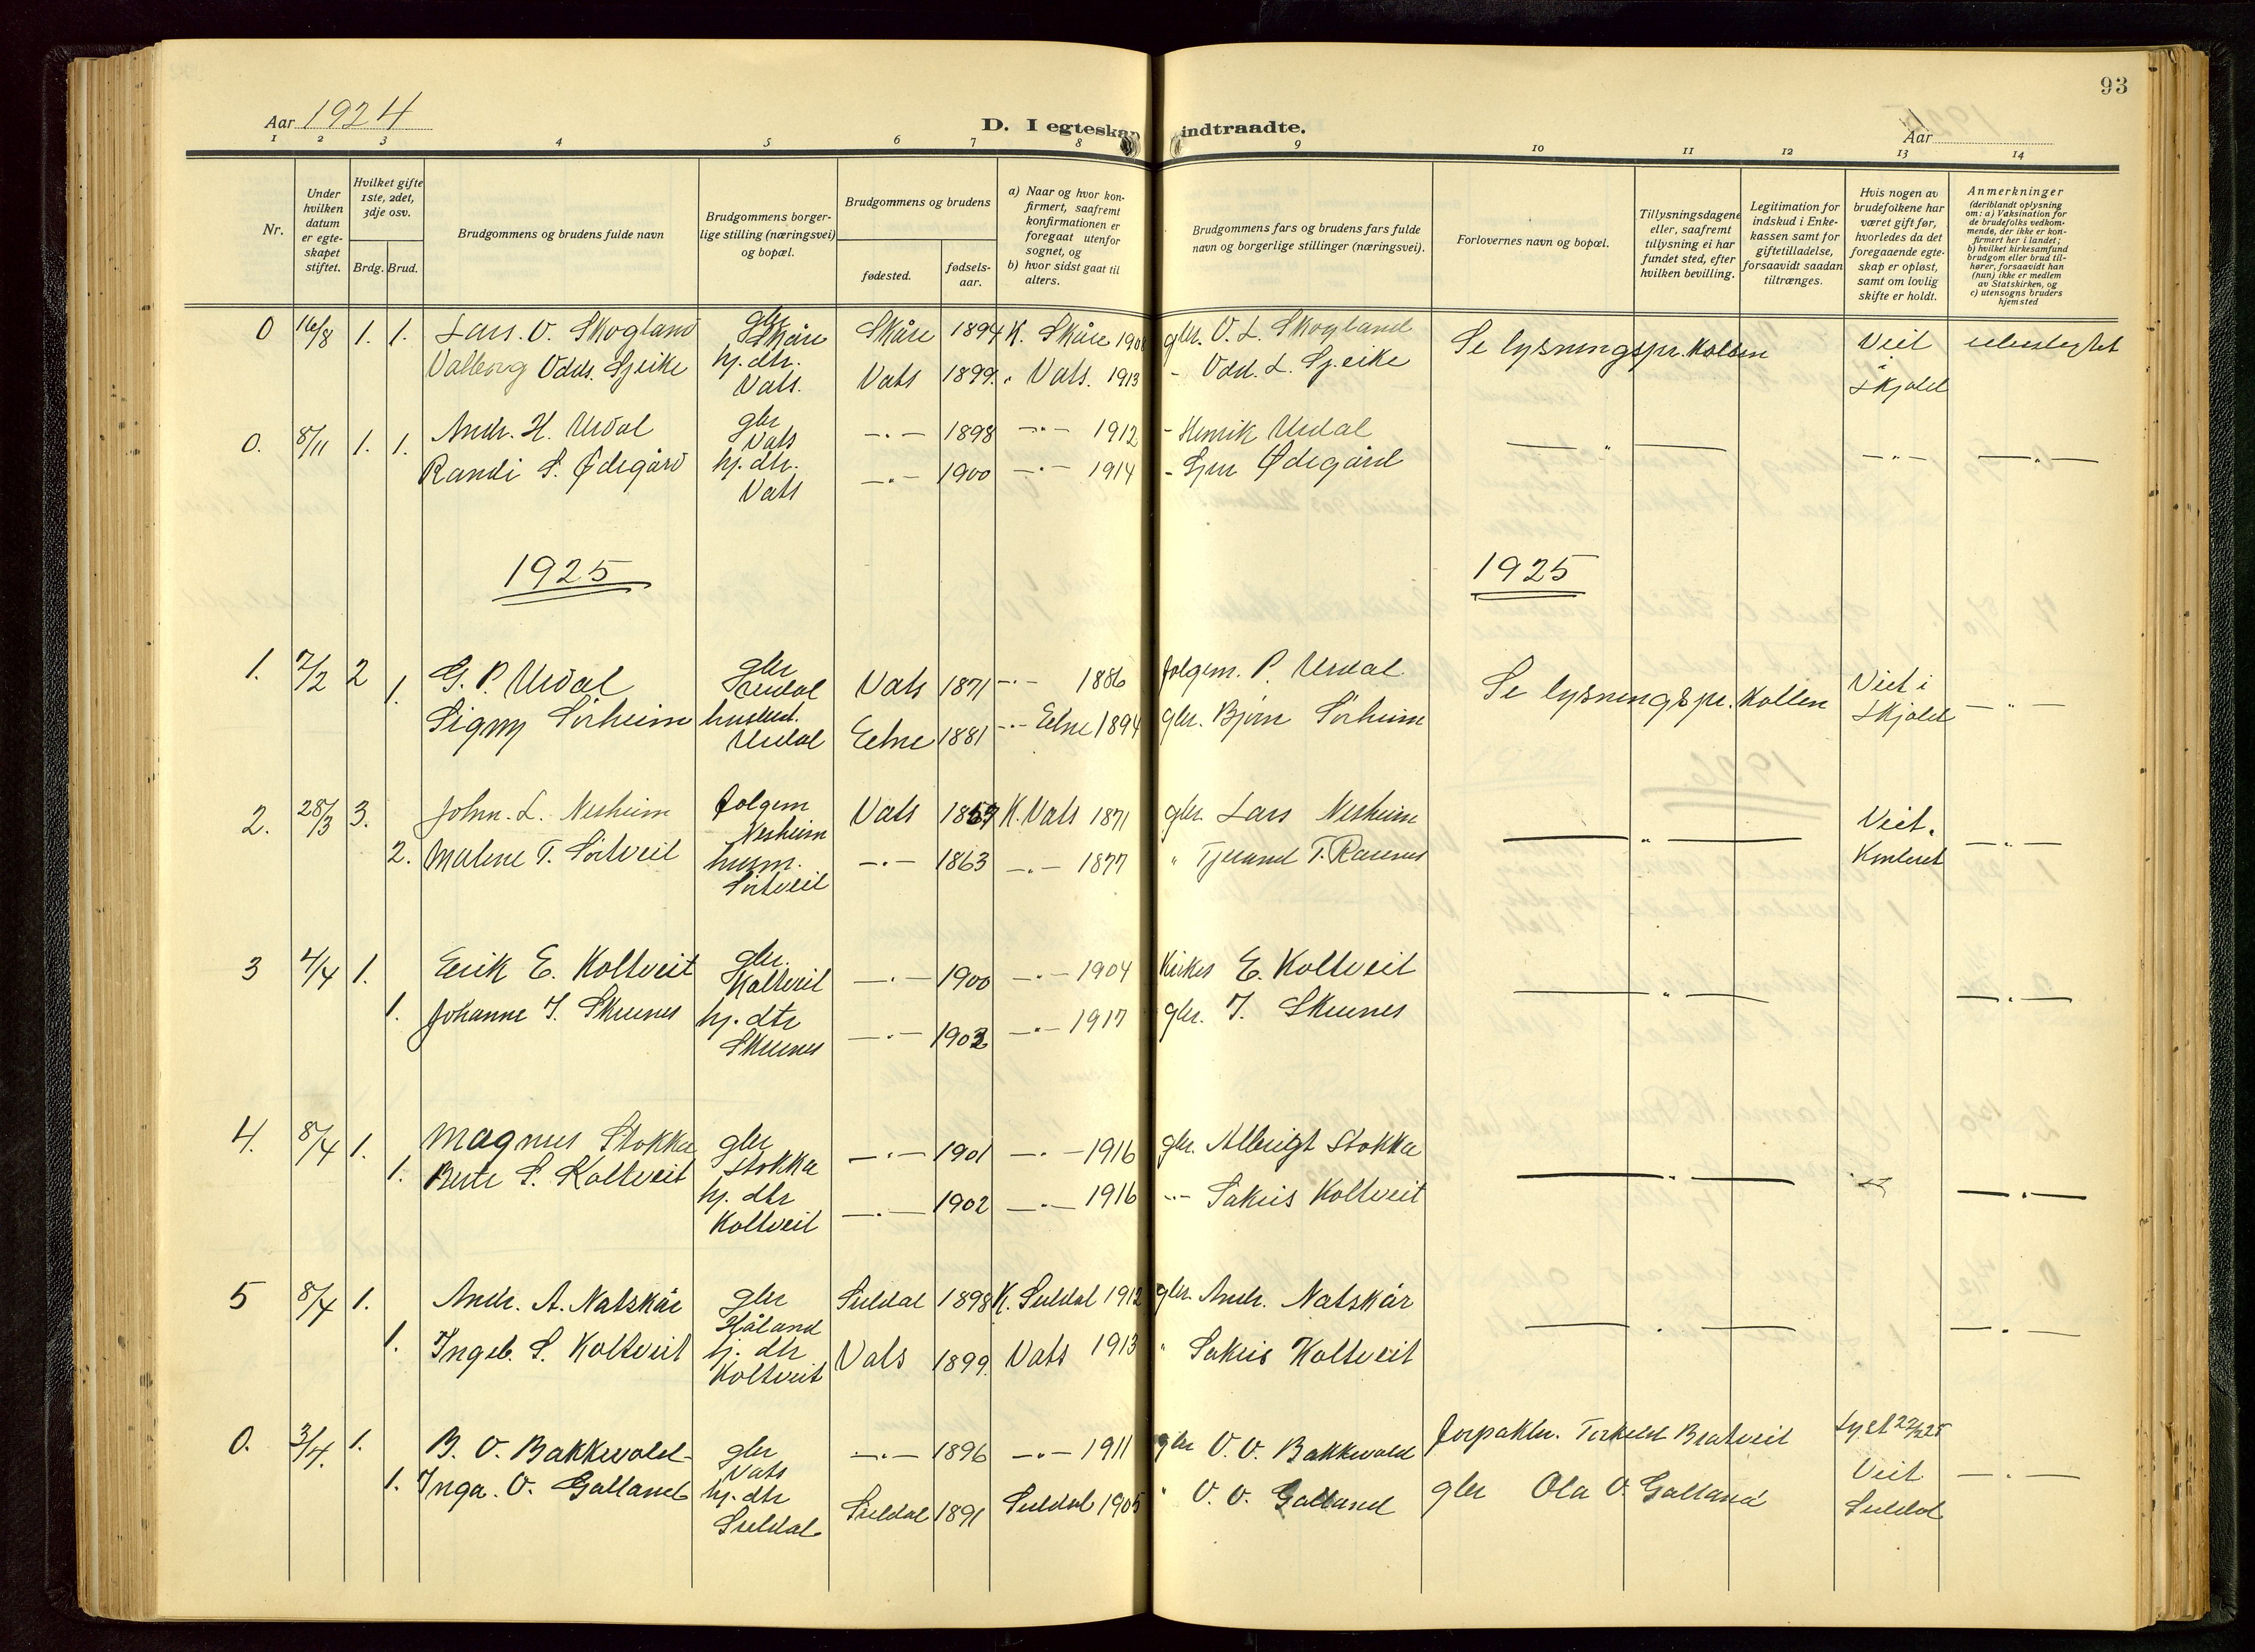 93
Aar 1924
D. I egteskap indtraadte.
Aar
1 2 3 4 5 6 7 8 9 10 11 12 13 14
Nr.
Under hvilken datum er egteskapet stiftet.
Hvilket gifte 1ste, 2det, 3dje osv.
Brdg. Brud.
Brudgommens og brudens fulde navn
Brudgommens borgerlige stilling (næringsvei) og bopæl.
Brudgommens og brudens
fødested.
fødselsaar.
a) Naar og hvor konfirmert, saafremt konfirmationen er foregaat utenfor sognet, og
b) hvor sidst gaat til alters.
Brudgommens fars og brudens fars fulde navn og borgerlige stillinger (næringsvei).
Forlovernes navn og bopæl.
Tillysningsdagene eller, saafremt tillysning ei har fundet sted, efter hvilken bevilling.
Legitimation for indskud i Enkekassen samt for giftetilladelse, forsaavidt saadan tiltrænges.
Hvis nogen av brudefolkene har været gift før, hvorledes da det foregaaende egteskap er opløst, samt om lovlig skifte er holdt.
Anmerkninger (deriblandt oplysning om: a) Vaksination for de brudefolks vedkommende, der ikke er konfirmert her i landet; b) hvilket kirkesamfund brudgom eller brud tilhører, forsaavidt han (hun) ikke er medlem av Statskirken, og c) utensogns bruders hjemsted
0 16/8 1. 1. Lars. O. Skogland gbr Skåre Skåre 1894 K. Skåre gbr. O. L. Skogland Se lysningspr. Kollen Viet ubeslegtet
Valborg Odds. Gjeike hj. dtr. Vats. Vats 1899. " Vats. 1913 - Odd. L. Gjeike i Skjold
0. 8/11 1. 1. Andr. H. Urdal gbr Vats —"— 1898 —"— 1912 - Henrik Urdal —"— —"— —"—
Randi S. Ødegård hj. dtr. Vats —"— 1900 —"— 1914 - Ødegård
1925 1925
1. 7/2 2 G. P. Urdal gbr Urdal Vats 1871 —"— 1886 folgem. P. Urdal Se lysningspr. Kollen Viet i —"—
1. Signy Sørheim Urdal Eetne 1881 —"— Eetne 1894 gbr. Bjørn Sørheim Skjold
2. 28/3 3. John. L. Nesheim folgem Nesheim Vats 1857 K. Vats 1871 gbr Lars Nesheim —"— Viet. —"—
2. Malene T. Sørtveit husm. Sørtveit —"— 1863 —"— 1877 " Tjerand T. Raunes
3 4/4 1. Erik E. Koltveit gbr. Koltveit —"— 1900 —"— 1904 E. Koltveit —"— —"—
1. Johanne J. Skeunes hj. dtr Skeunes —"— 1902 —"— 1917 gbr. J. Skeunes
4. 8/4 1. Magnus Stokka gbr Stokka —"— 1901 —"— 1916 gbr. Albrigt Stokka —"— —"— —"—
1. Berte S. Koltveit hj. dtr Koltveit —"— 1902 —"— 1916 —"— Sakris Koltveit
5 8/4 1. Andr. A. Natskår gbr Håland Suldal 1898 K. Suldal 1912 gbr. Andr. Natskår —"— —"—
1. Ingeb. S. Koltveit hj. dtr Koltveit Vats 1899. Vats 1913 " Sakris Koltveit
0. 3/4. 1. B. O. Bakkevold gbr Vats —"— 1896 —"— 1911 gbr O. O. Bakkevold forpakter. Torkeld Bratveit Lyst Viet —"—
1. Inga. O. Galland hj. dtr Suldal Suldal 1891 Suldal 1905 " O. O. Galland gbr Ola O. Galland Suldal